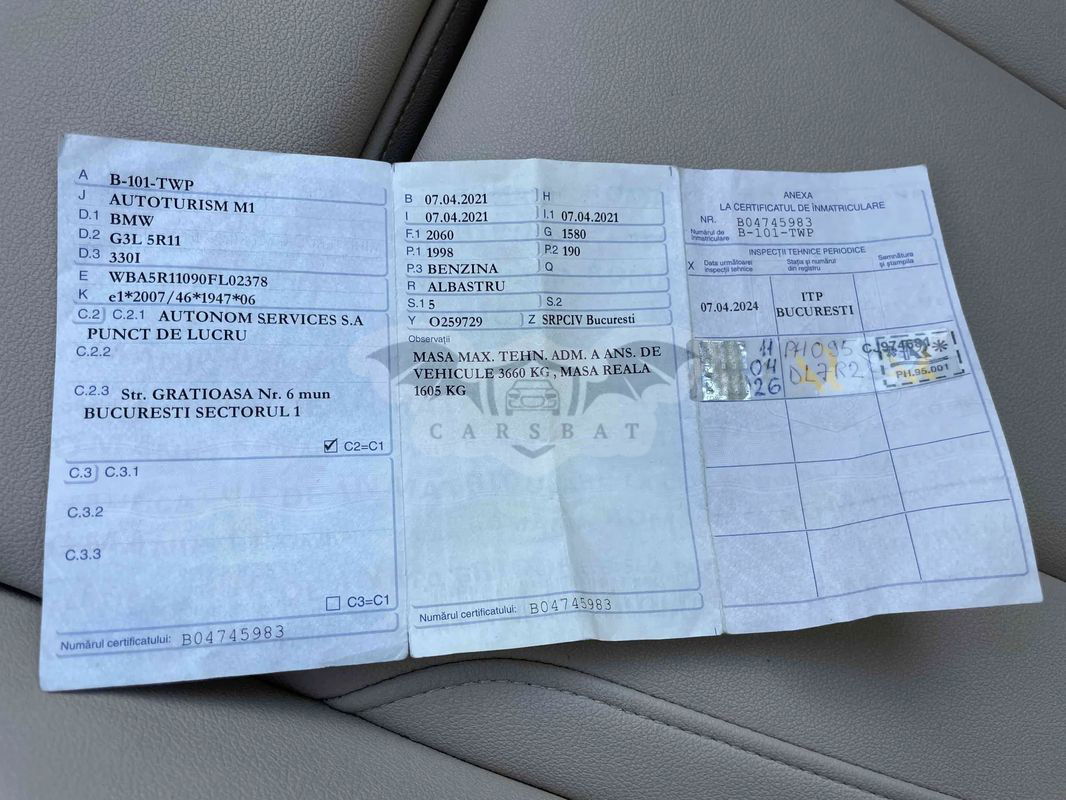 A B-101-TWP
J AUTOTURISM M1
D.1 BMW
D.2 G3L 5R11
D.3 330I
E WBA5R11090FL02378
K e1*2007/46*1947*06
C.2 C.2.1 AUTONOM SERVICES S.A
PUNCT DE LUCRU
C.2.2
C.2.3 Str. GRATIOASA Nr. 6 mun
BUCURESTI SECTORUL 1
C2=C1
C.3 C.3.1
C.3.2
C.3.3
C3=C1
Numărul certificatului: B04745983
B 07.04.2021 H
I 07.04.2021 I.1 07.04.2021
F.1 2060 G 1580
P.1 1998 P.2 190
P.3 BENZINA Q
R ALBASTRU
S.1 5 S.2
Y O259729 Z SRPCIV Bucuresti
Observații
MASA MAX. TEHN. ADM. A ANS. DE
VEHICULE 3660 KG , MASA REALA
1605 KG
CARSBAT
Numărul certificatului: B04745983
ANEXA
LA CERTIFICATUL DE ÎNMATRICULARE
NR. B04745983
Numărul de înmatriculare B-101-TWP
INSPECȚII TEHNICE PERIODICE
X Data următoarei inspecții tehnice Stația și numărul din registru Semnătura și ștampila
07.04.2024 ITP BUCURESTI
11 PH095
04
26
PH.95.001